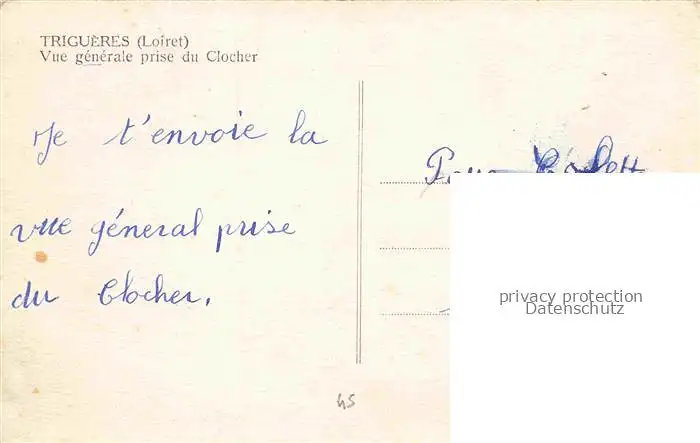 TRIGUÈRES (Loiret)
Vue générale prise du Clocher
Je t'envoie la
vue général prise
du Clocher.
Pour
privacy protection
Datenschutz
45